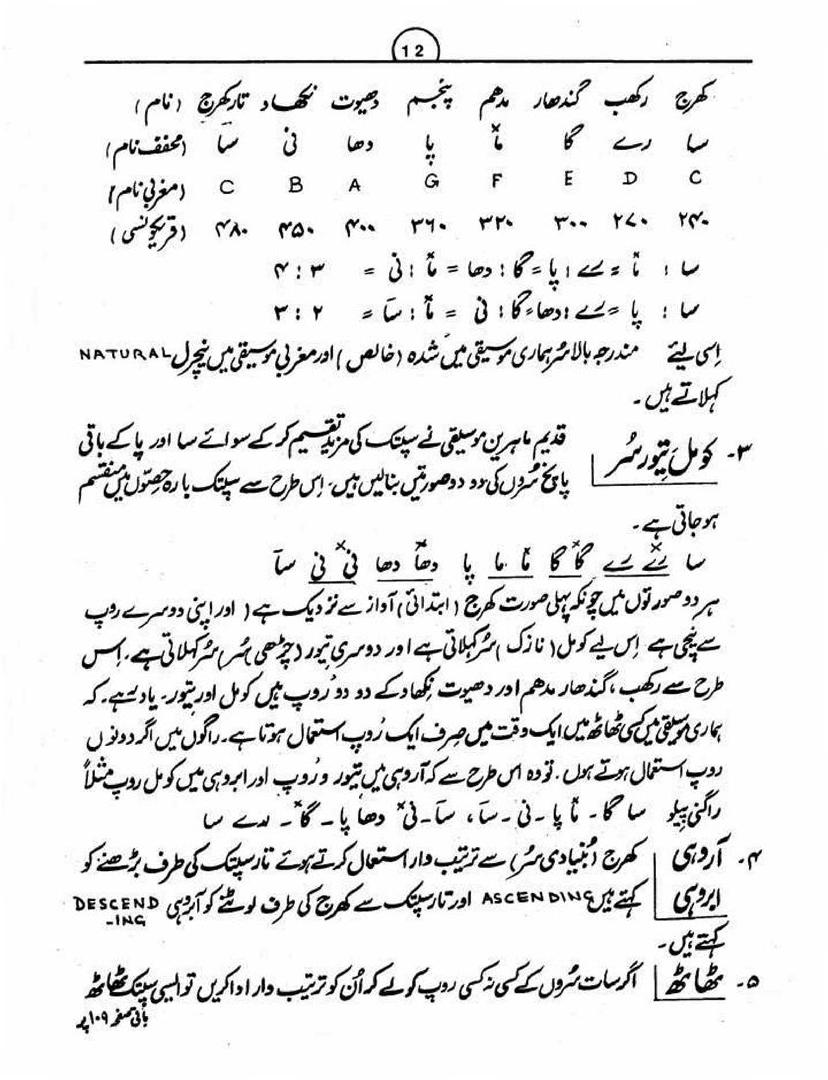 12
کھرج رکھب گندھار مدھم پنجم دھیوت نکھاد تارکھرج (نام)
سا رے گا ما× پا دھا نی سا (مخفف نام)
C D E F G A B C (مغربی نام)
۲۴۰ ۲۷۰ ۳۰۰ ۳۲۰ ۳۶۰ ۴۰۰ ۴۵۰ ۴۸۰ (فریکونسی)
سا : ما = رے : پا = گا : دھا = ما : نی = ۳ : ۴
سا : پا = رے : دھا = گا : نی = ما : سا = ۲ : ۳
اِسی لیئے مندرجہ بالا سُر ہماری موسیقی میں شُدہ (خالص) اور مغربی موسیقی میں نیچرل NATURAL
کہلاتے ہیں۔
۳۔ کومل تیور سُر قدیم ماہرین موسیقی نے سپتک کی مزید تقسیم کر کے سوائے سا اور پا کے باقی
پانچ سُروں کی دو دو صورتیں بنا لیں ہیں۔ اِس طرح سے سپتک بارہ حِصّوں میں منقسم
ہو جاتی ہے۔
سا رے× رے گا× گا ما ما پا دھا× دھا نی× نی سآ
ہر دو صورتوں میں چونکہ پہلی صورت کھرج (ابتدائی) آواز سے نزدیک ہے (اور اپنی دوسرے روپ
سے نیچی ہے اِس لیے کومل (نازک) سُر کہلاتی ہے اور دوسری تیور (چڑھی سُر) سُر کہلاتی ہے۔ اِس
طرح سے رکھب، گندھار مدھم اور دھیوت نکھاد کے دو دو رُوپ ہیں کومل اور تیور۔ یاد رہے۔ کہ
ہماری موسیقی میں کسی ٹھاٹھ میں ایک وقت میں صِرف ایک رُوپ استعمال ہوتا ہے۔ راگوں میں اگر دونوں
روپ استعمال ہوتے ہوں۔ تو وہ اس طرح سے کہ آروہی میں تیور و رُوپ اور ابروہی میں کومل روپ مثلاً
راگنی پیلو سا گا۔ ما پا۔ نی۔ سآ، سآ۔ نی× دھا پا۔ گا×۔ رے سا
۴۔ آروہی کھرج (بُنیادی سُر) سے ترتیب وار استعمال کرتے ہوئے تار سپتک کی طرف بڑھنے کو
ابروہی کہتے ہیں ASCENDING اور تار سپتک سے کھرج کی طرف لوٹنے کو آبروہی DESCEND
-ING
کہتے ہیں۔
۵۔ ٹھاٹھ اگر سات سُروں کے کسی نہ کسی روپ کو لے کر اُن کو ترتیب وار ادا کریں تو ایسی سپتک ٹھاٹھ
باقی صفحہ ۱۰۹ پر